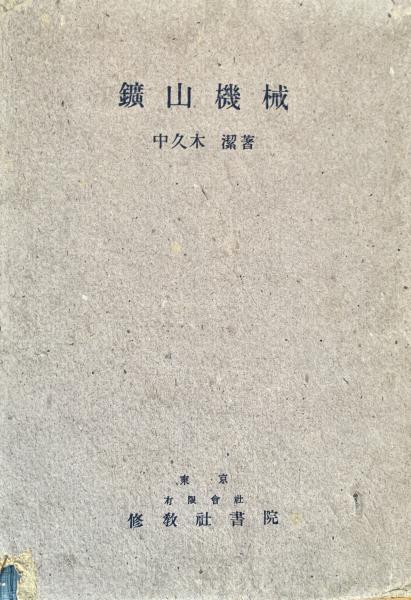 鑛山機械
中久木 潔著
東京
有限會社
修教社書院